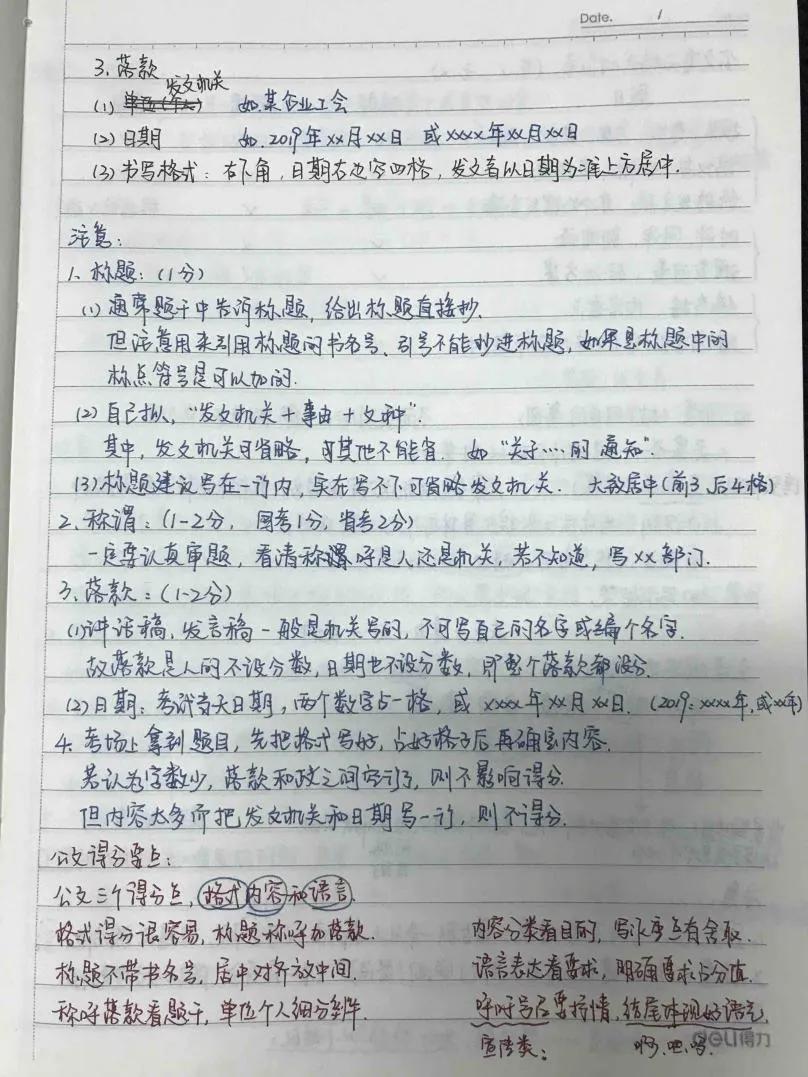 Date. /
3. 落款
发文机关
(1) 单位(个人) 如某企业工会
(2) 日期 如 2019年xx月xx日 或xxxx年xx月xx日
(3) 书写格式：右下角，日期右边空四格，发文者以日期为准上方居中.
注意：
1. 标题：(1分)
(1) 通常题干中告诉标题，给出标题直接抄.
但注意用来引用标题的书名号、引号不能抄进标题，如果是标题中的
标点符号是可以加的.
(2) 自己拟，“发文机关+事由+文种”.
其中，发文机关可省略，可其他不能省. 如“关于……的通知”.
(3) 标题建议写在一行内，实在写不下可省略发文机关. 大致居中(前3、后4格)
2. 称谓：(1-2分，国考1分，省考2分)
一定要认真审题，看清称谓呼是人还是机关，若不知道，写xx部门.
3. 落款：(1-2分)
(1) 讲话稿，发言稿一般是机关写的，不可写自己的名字或编个名字.
故落款是人的不设分数，日期也不设分数，即整个落款都没分.
(2) 日期：考试当天日期，两个数字占一格，或 xxxx年xx月xx日. (2019：xxxx年，或xx年)
4. 考场上拿到题目，先把格式写好，占好格子后再确定内容.
若认为字数少，落款和正文之间空行了，则不影响得分.
但内容太多而把发文机关和日期写一行，则不得分.
公文得分要点：
公文三个得分点，格式内容和语言.
格式得分很容易，标题称呼加落款. 内容分类看目的，写作要点有舍取.
标题不带书名号，居中对齐放中间. 语言表达看要求，明确要求占分值.
称呼落款看题干，单位个人细分辨. 呼吁号召要抒情，结尾体现好语气.
宣传类： 啊.吧.吗.
deli得力